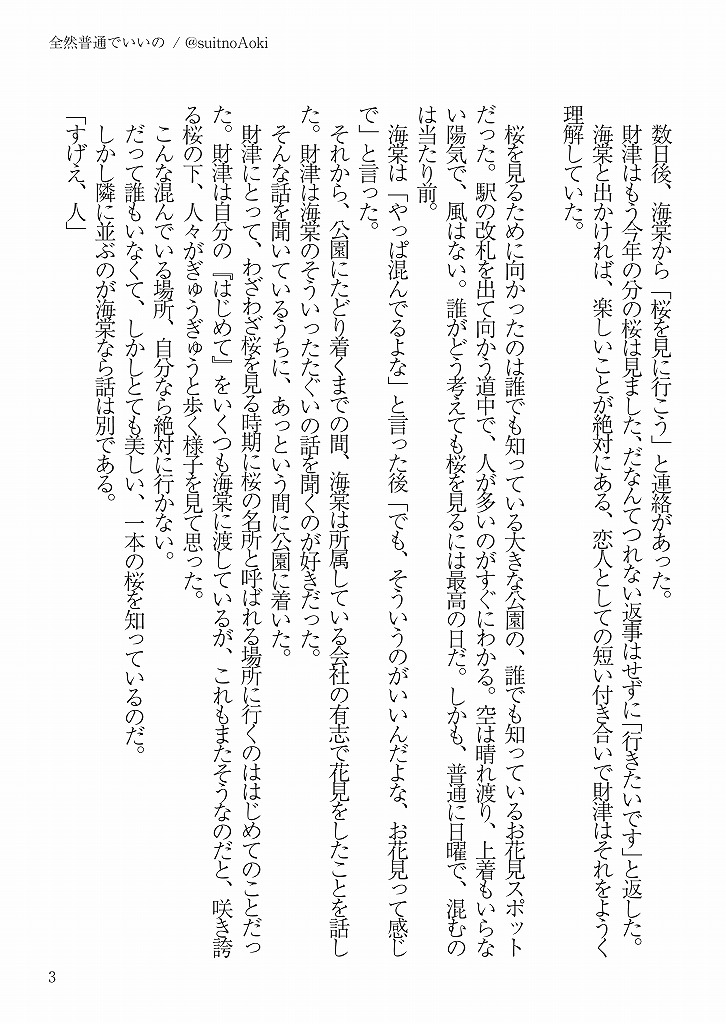 全然普通でいいの / @suitnoAoki
数日後、海棠から「桜を見に行こう」と連絡があった。
財津はもう今年の分の桜は見ました、だなんてつれない返事はせずに「行きたいです」と返した。
海棠と出かければ、楽しいことが絶対にある、恋人としての短い付き合いで財津はそれをようく
理解していた。
桜を見るために向かったのは誰でも知っている大きな公園の、誰でも知っているお花見スポット
だった。駅の改札を出て向かう道中で、人が多いのがすぐにわかる。空は晴れ渡り、上着もいらな
い陽気で、風はない。誰がどう考えても桜を見るには最高の日だ。しかも、普通に日曜で、混むの
は当たり前。
海棠は「やっぱ混んでるよな」と言った後「でも、そういうのがいいんだよな、お花見って感じ
で」と言った。
それから、公園にたどり着くまでの間、海棠は所属している会社の有志で花見をしたことを話し
た。財津は海棠のそういったたぐいの話を聞くのが好きだった。
そんな話を聞いているうちに、あっという間に公園に着いた。
財津にとって、わざわざ桜を見る時期に桜の名所と呼ばれる場所に行くのははじめてのことだっ
た。財津は自分の『はじめて』をいくつも海棠に渡しているが、これもまたそうなのだと、咲き誇
る桜の下、人々がぎゅうぎゅうと歩く様子を見て思った。
こんな混んでいる場所、自分なら絶対に行かない。
だって誰もいなくて、しかしとても美しい、一本の桜を知っているのだ。
しかし隣に並ぶのが海棠なら話は別である。
「すげえ、人」
3